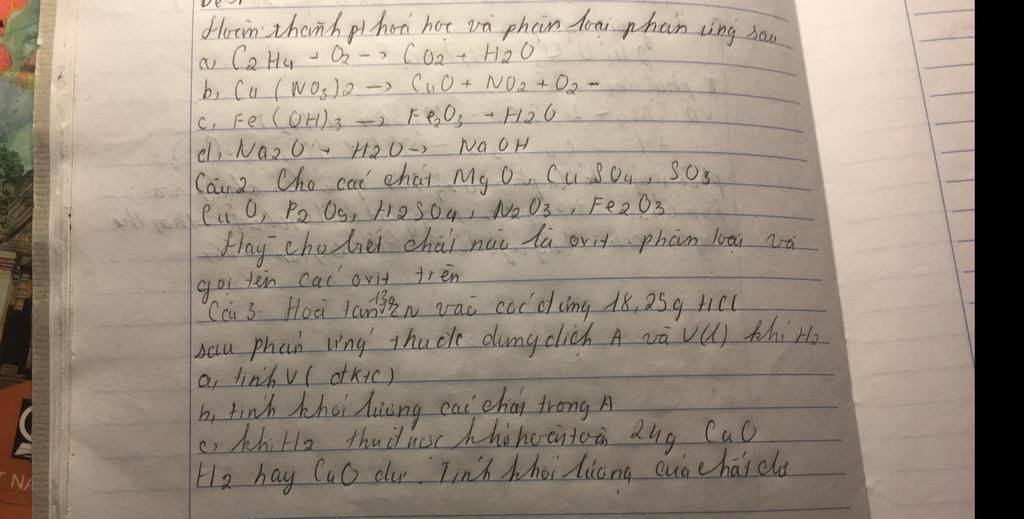 Hoàn thành pt hoá học và phân loại phản ứng sau
a, C2H4 + O2 -> CO2 + H2O
b, Cu(NO3)2 -> CuO + NO2 + O2
c, Fe(OH)3 -> Fe2O3 + H2O
d, Na2O + H2O -> NaOH
Câu 2. Cho các chất MgO, CuSO4, SO3
CuO, P2O5, H2SO4, N2O3, Fe2O3
Hãy cho biết chất nào là oxit. phân loại và
gọi tên các oxit trên
Câu 3: Hoà tan 13g ZN vào cốc đựng 18,25g HCl
sau phản ứng thu đc dung dịch A và V(l) khí H2
a, tính V (đktc)
b, tính khối lượng các chất trong A
c, khí H2 thu được khử hoàn toàn 24g CuO
H2 hay CuO dư. Tính khối lượng của chất dư